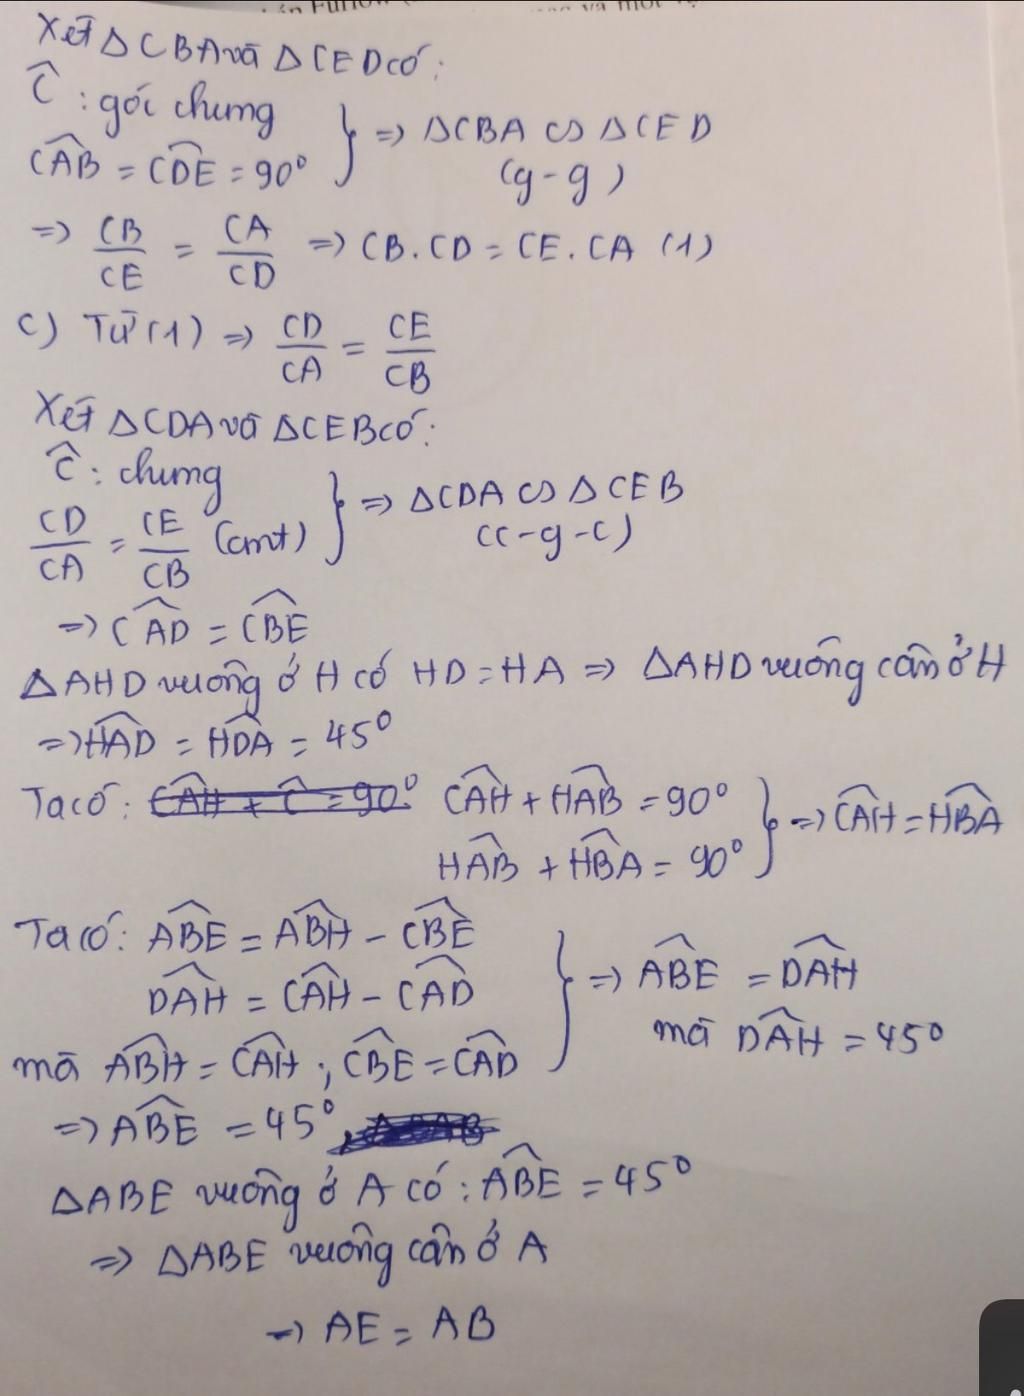 Xét ΔCBA và ΔCED có:
Ĉ : góc chung
CAB = CDE = 90° } => ΔCBA ∽ ΔCED
(g-g)
=> CB/CE = CA/CD => CB.CD = CE.CA (1)
c) Từ (1) => CD/CA = CE/CB
Xét ΔCDA và ΔCEB có:
Ĉ : chung
CD/CA = CE/CB (cmt) } => ΔCDA ∽ ΔCEB
(c-g-c)
=> CAD = CBE
ΔAHD vuông ở H có HD = HA => ΔAHD vuông cân ở H
=> HAD = HDA = 45°
Ta có: CAH + Ĉ = 90° CAH + HAB = 90°
HAB + HBA = 90° } => CAH = HBA
Ta có: ABE = ABH - CBE
DAH = CAH - CAD
mà ABH = CAH ; CBE = CAD } => ABE = DAH
mà DAH = 45°
=> ABE = 45°
ΔABE vuông ở A có: ABE = 45°
=> ΔABE vuông cân ở A
=> AE = AB